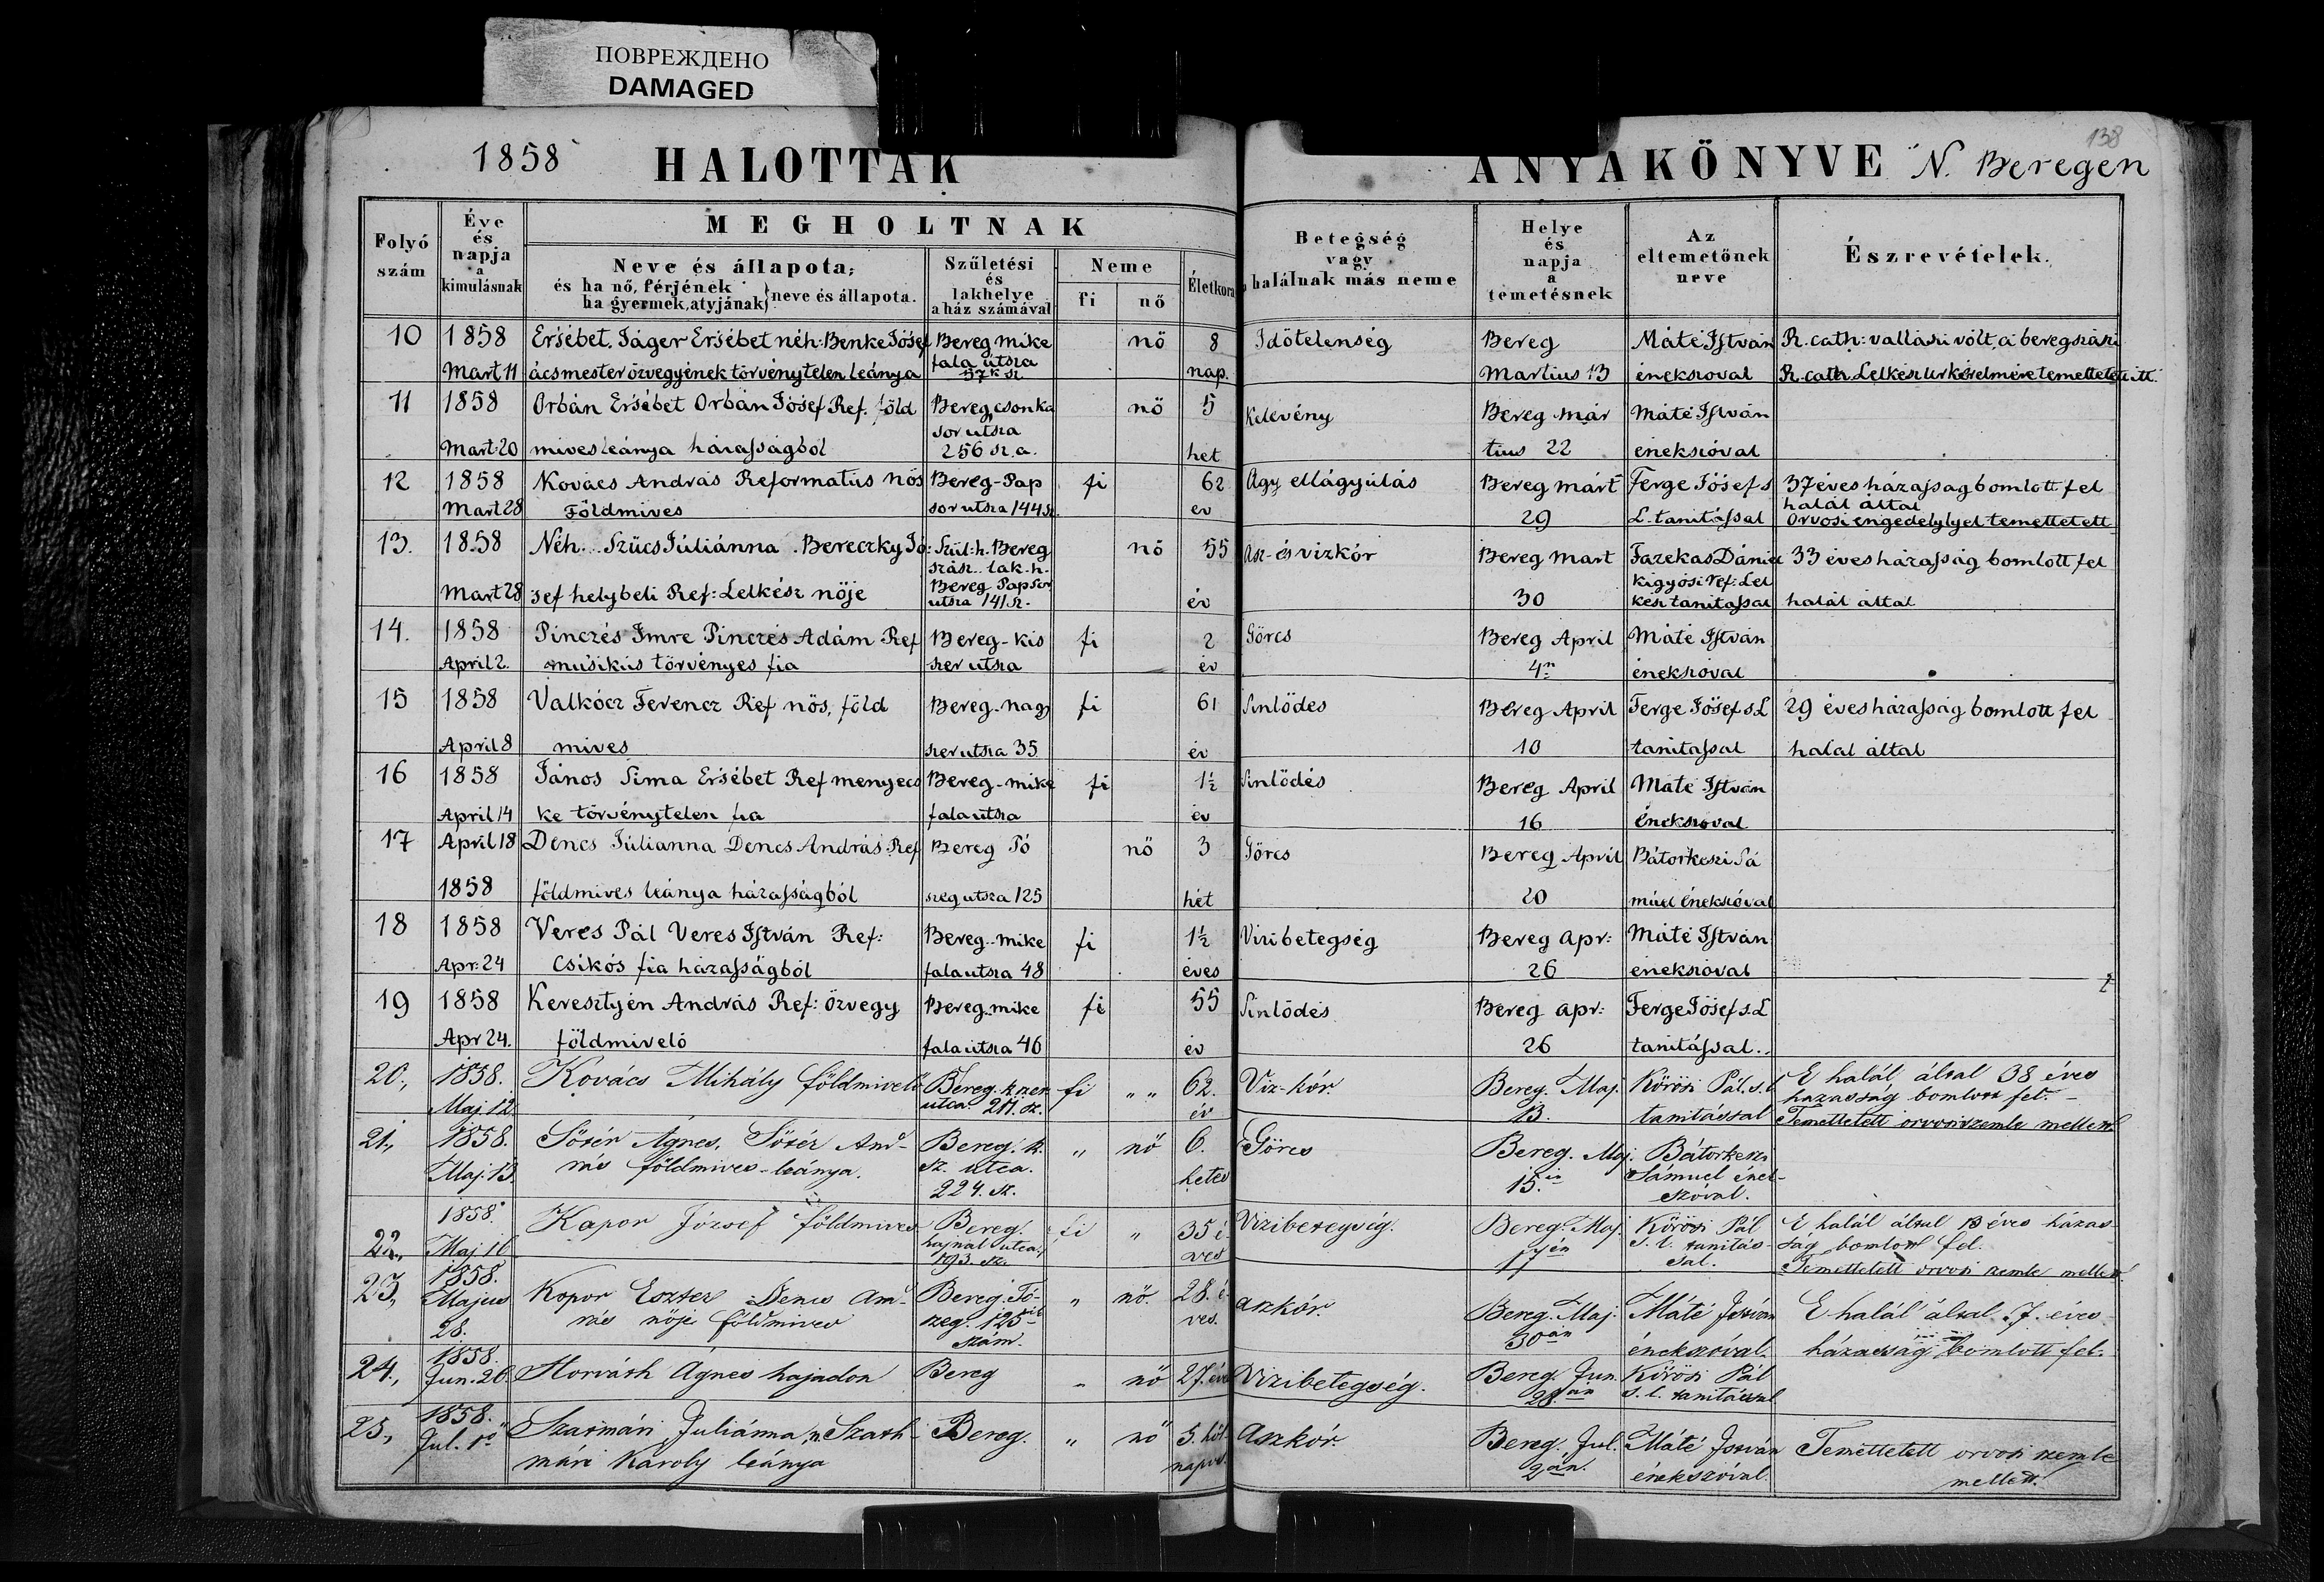 ПОВРЕЖДЕНО
DAMAGED
138
1858 HALOTTAK ANYAKÖNYVE N. Beregen
Folyó szám
Éve és napja a kimulásnak
MEGHOLTNAK
Neve és állapota,
és ha nő, férjének
ha gyermek, atyjának } neve és állapota.
Születési és lakhelye a ház számával
Neme
fi nő
Életkora
Betegség vagy halálnak más neme
Helye és napja a temetésnek
Az eltemetőnek neve
Észrevételek.
10 1858 Ersébet. Jáger Ersébet néh: Benke Jósef Bereg mike nő 8 Idötelenség Bereg Máté Istvan R. cath: vallásu vólt, a beregszászi
fala utsza
Mart 11 ácsmester özvegyének törvénytelen leánya 57k sz nap. Martius 13 énekszoval R. cath. Lelkész Ur kérelmére temettetett itt.
11 1858 Orbán Ersébet Orbán Jósef Ref. föld Bereg csonka nő 5 Kelevény Bereg már Máté István
sor utsza
Mart: 20 mives leánya házasságból 256 sz. a. het tius 22 énekszóval
12 1858 Kovács András Reformatus nős Bereg-Pap fi 62 Agy ellágyúlás Bereg márt Ferge Jósef s 37 éves házasság bomlott fel
halál által
Mart 28 Földmives sor utsza 144 sz. ev 29 L. tanítással Orvosi engedelylyel temettetett
13. 1858 Néh. Szűcs Júliánna Bereczky Jó: Szül: h. Bereg nő 55 Asz- és vizkór Bereg Mart Fazekas Dániel 33 éves házasság bomlott fel
szász. lak. h. Kigyósi ref: Lel
Mart 28 zsef helybeli Ref: Lelkész nője Bereg Papsor év 30 kész tanitassal halál által
utsza 141 sz.
14. 1858 Pinczés Imre Pinczés Adám Ref Bereg-kis fi 2 Görcs Bereg April Máté István
April 2. músikús törvényes fia szer utsza év 4n énekszóval
15 1858 Valkócz Ferencz Ref nős, föld Bereg-nagy fi 61 Sinlödes Bereg April Ferge Jósef s. L 29 éves házasság bomlott fel
April 8 mives szer utsza 35 év 10 tanitassal halál által
16 1858 János Sima Ersébet Ref menyecs Bereg-mike fi 1½ Sinlödés Bereg April Máté István
April 14 ke törvénytelen fia fala utsza év 16 énekszoval
17 April 18 Dencs Júlianna Dencs András Ref Bereg Tó nő 3 Görcs Bereg April Bátorkeszi Sá
1858 földmives leánya házasságból szeg utsza 125 hét 20 múel énekszóval
18 1858 Veres Pál Veres István Ref: Bereg-mike fi 1½ Vizibetegség Bereg Apr: Máté István
Apr: 24 Csikós fia házasságból fala utsza 48 éves 26 énekszóval
19 1858 Keresztyén András Ref: özvegy Bereg mike fi 55 Sinlödés Bereg apr: Ferge Jósef s. L
Apr 24. földmivelő fala utsza 46 év 26 tanitással.
20., 1858. Kovács Mihály földmivelő Bereg. k. szer fi " " 62. Viz-kór. Bereg. Maj. Körösi Pál. s. l. E halál által 38 éves
házasság bomlott fel.
Maj. 12. utca. 211. sz. év 13. tanitással Temettetett orvosi szemle mellett
21., 1858. Sötér Ágnes, Sötér And- Bereg. k. " nő 6. Görcs Bereg. Maj. Bátorkeszi
Maj. 13. rás földmives-leánya. sz. utca. hetes 15.én Sámuel ének-
224. sz. szóval.
22., 1858. Kapor József földmives Bereg. fi " 35 é- Vizibetegség. Bereg. Maj. Körösi Pál E halál által 13 éves házas-
Maj. 16 hajnal utca. ves 17én s. l. tanitás- ság bomlott fel.
193. sz. sal. Temettetett orvosi szemle mellett.
23., 1858. Kopor Eszter Dencs And- Bereg. Tó- " nő. 28. é- aszkór. Bereg. Maj. Máté István E halál által 7. éves
Majus rás nője földmives szeg. 125ik ves. 30án énekszóval. házasság bomlott fel.
28. szám.
24., 1858. Horváth Ágnes hajadon Bereg " nő 27. éves Vizibetegség. Bereg. Jun. Körösi Pál
Jun. 26. 28.án s. l. tanitással
25., 1858. Szatmári Juliánna, Szath- Bereg. " nő 5. hól Aszkór. Bereg. Jul. Máté István Temettetett orvosi szemle
Jul. 1ő mári Károly leánya napos. 2án. énekszóval. mellett.